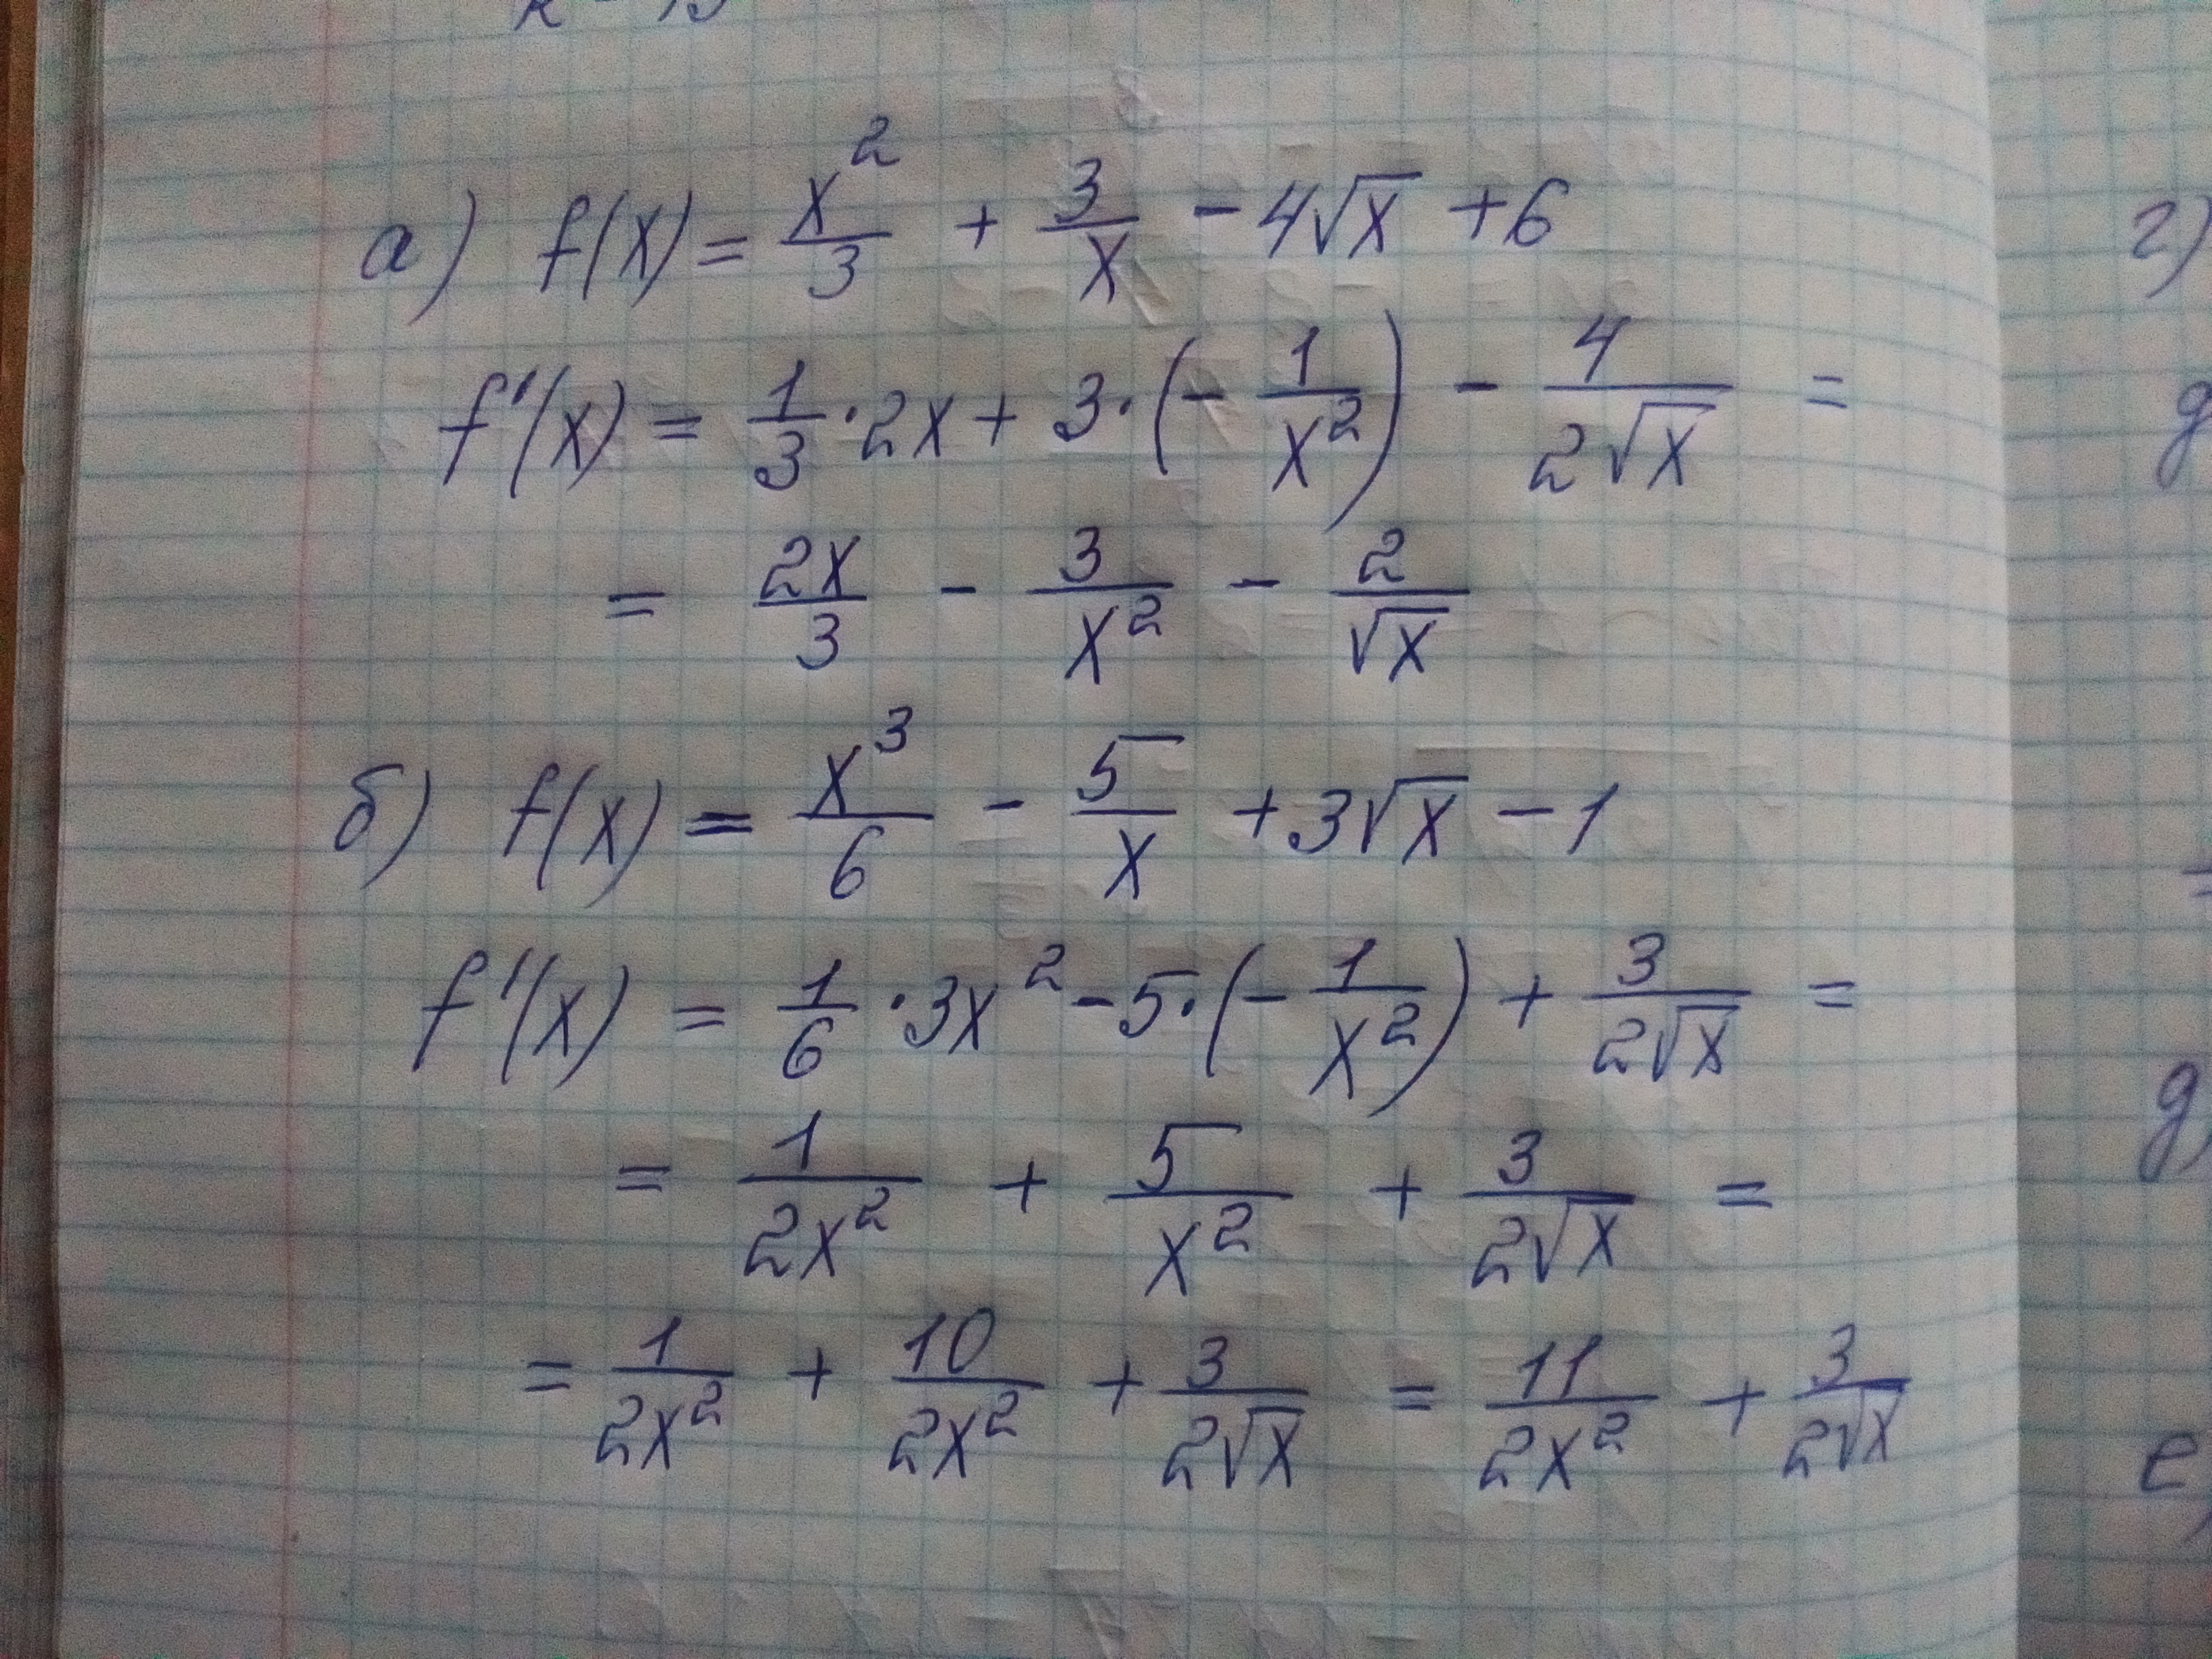 а) f(x) = x²/3 + 3/x - 4√x + 6
f'(x) = 1/3 · 2x + 3 · (- 1/x²) - 4/(2√x) =
= 2x/3 - 3/x² - 2/√x
б) f(x) = x³/6 - 5/x + 3√x - 1
f'(x) = 1/6 · 3x² - 5 · (- 1/x²) + 3/(2√x) =
= 1/(2x²) + 5/x² + 3/(2√x) =
= 1/(2x²) + 10/(2x²) + 3/(2√x) = 11/(2x²) + 3/(2√x)
г)
g
=
g
е)